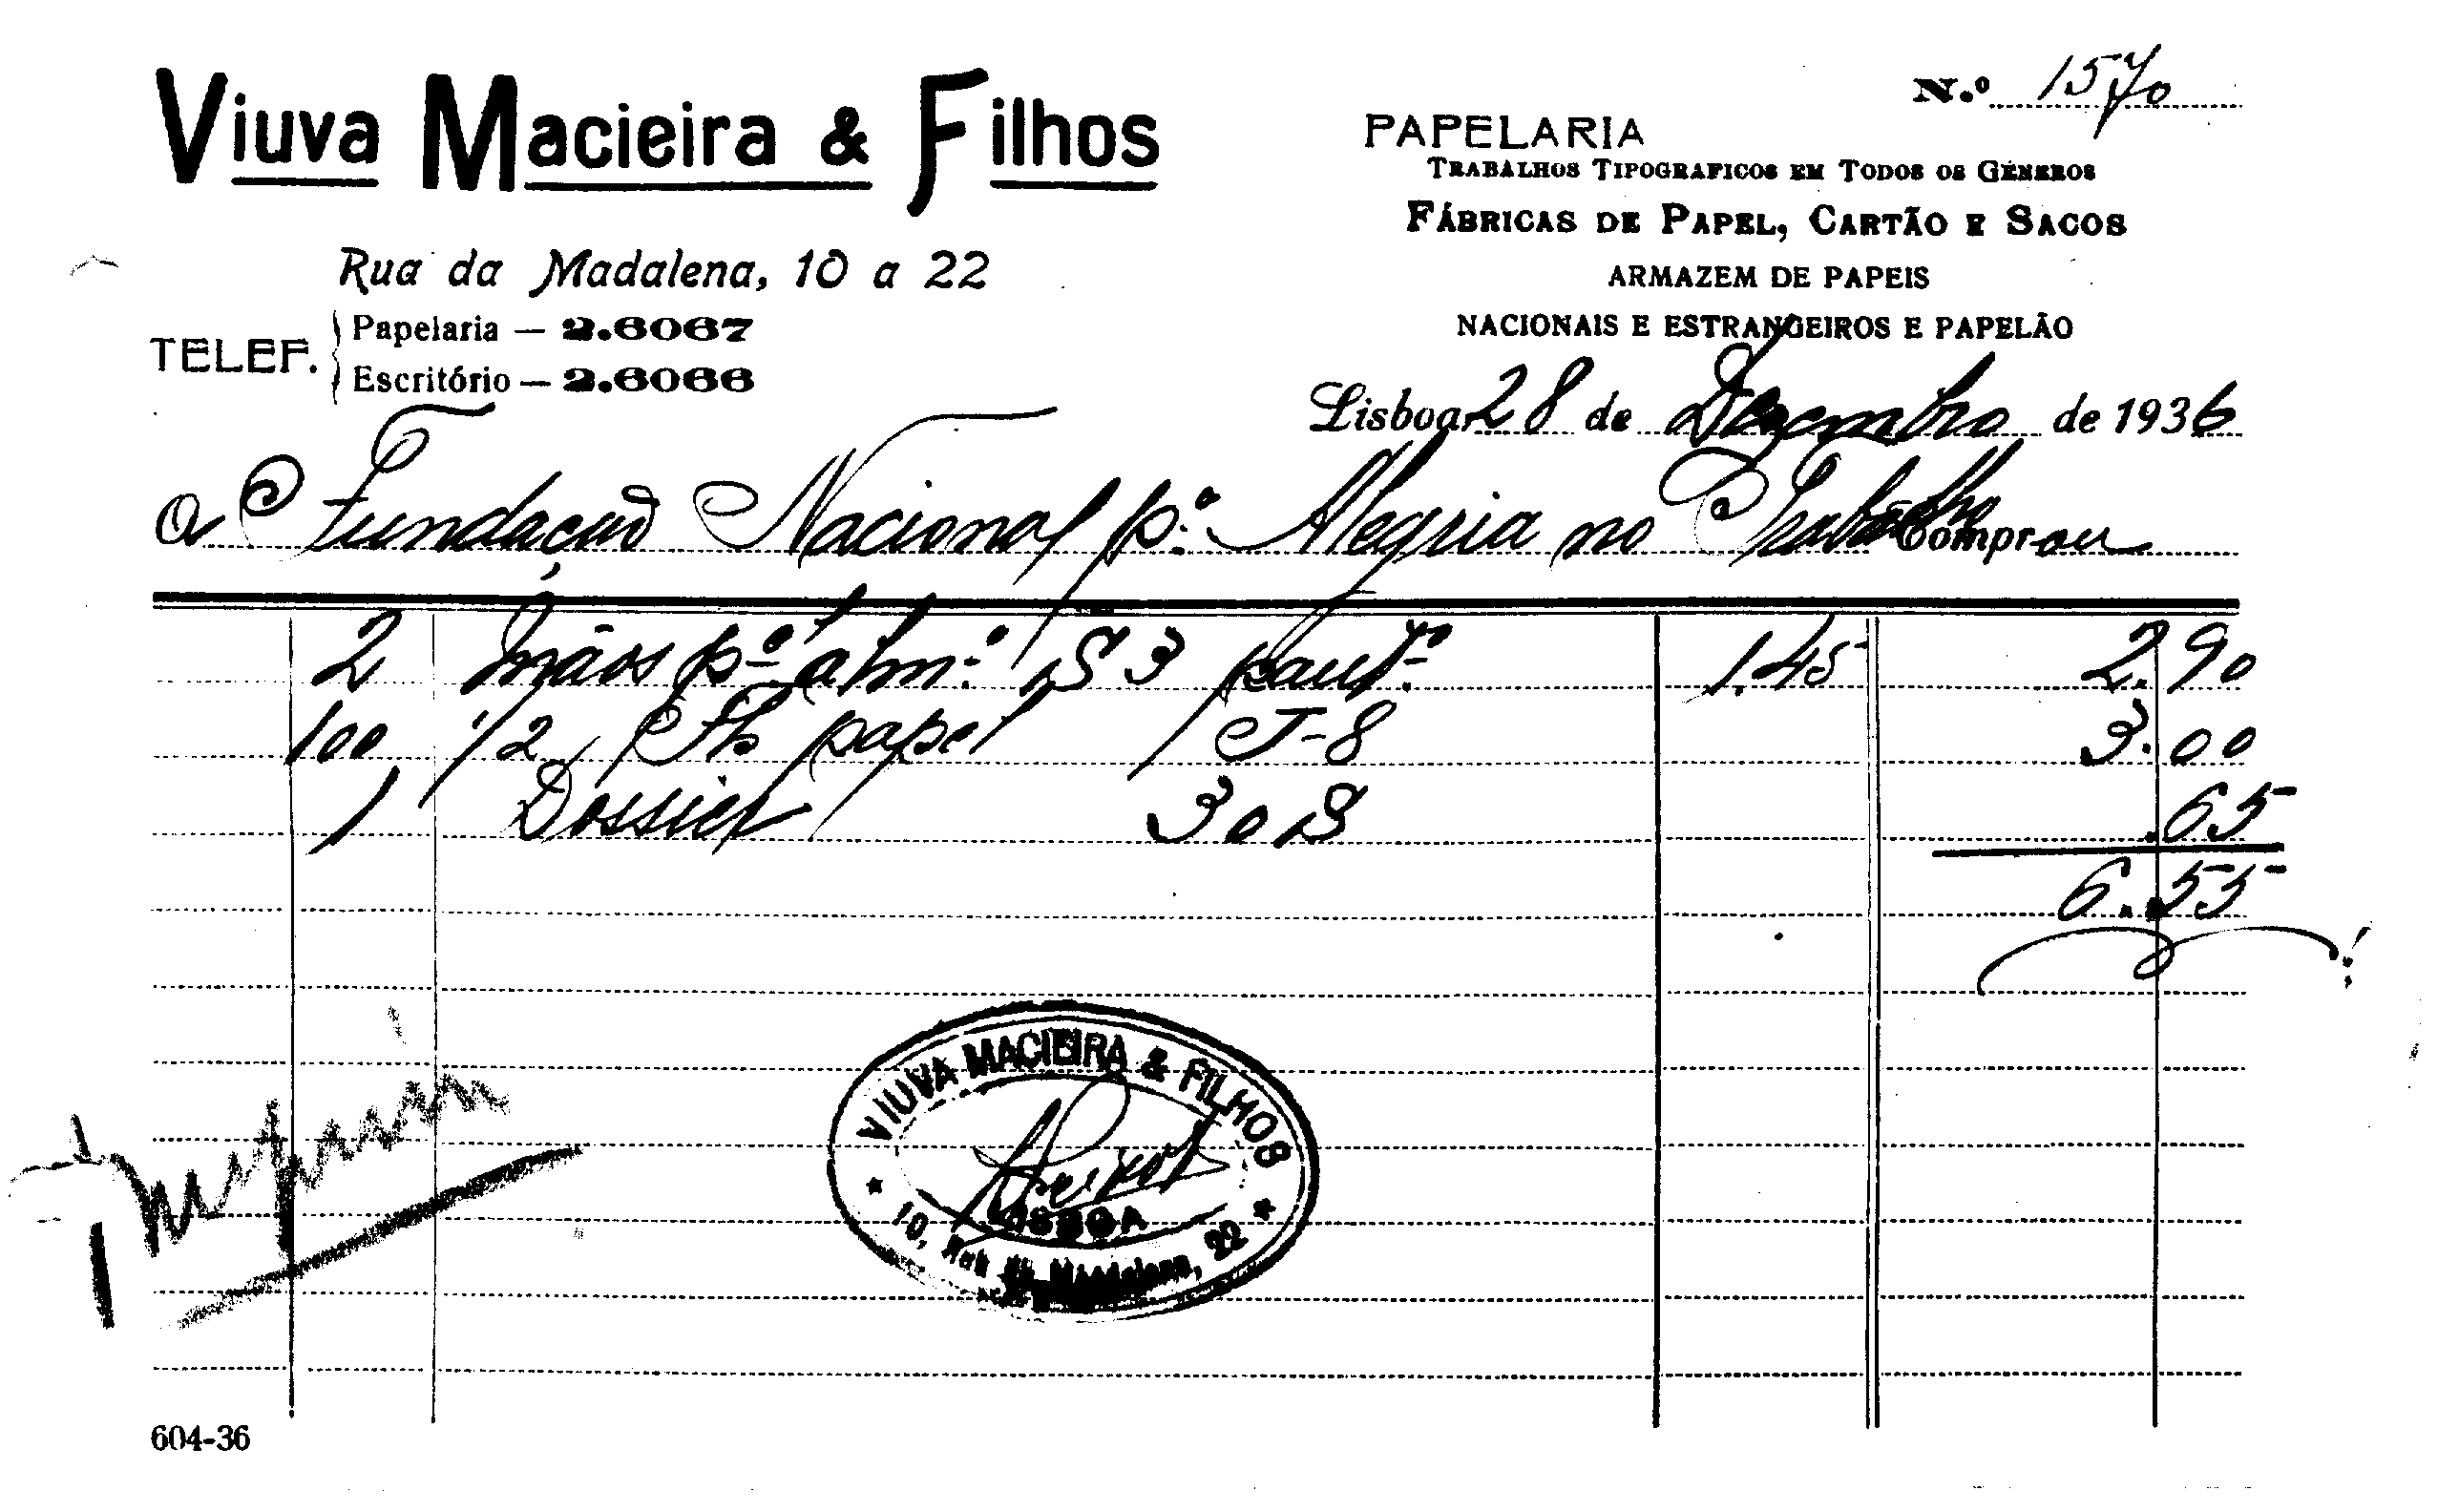 Viuva Macieira & Filhos
Rua da Madalena, 10 a 22
TELEF.
Papelaria — 2.6067
Escritório — 2.6066
N.º 1570
PAPELARIA
TRABALHOS TIPOGRAFICOS EM TODOS OS GÉNEROS
FÁBRICAS DE PAPEL, CARTÃO E SACOS
ARMAZEM DE PAPEIS
NACIONAIS E ESTRANGEIROS E PAPELÃO
Lisboa, 28 de Dezembro de 1936
A Fundação Nacional p.ª Alegria no Trabalho Comprou
2 mãos p.º alm.º S 3 paut.º 1.45 2.90
100 1/2 Fh papel J-8 3.00
1 Dossier 30 S .65
6.55
VIUVA MACIEIRA & FILHOS
LISBOA
10, Rua da Madalena, 22
604-36